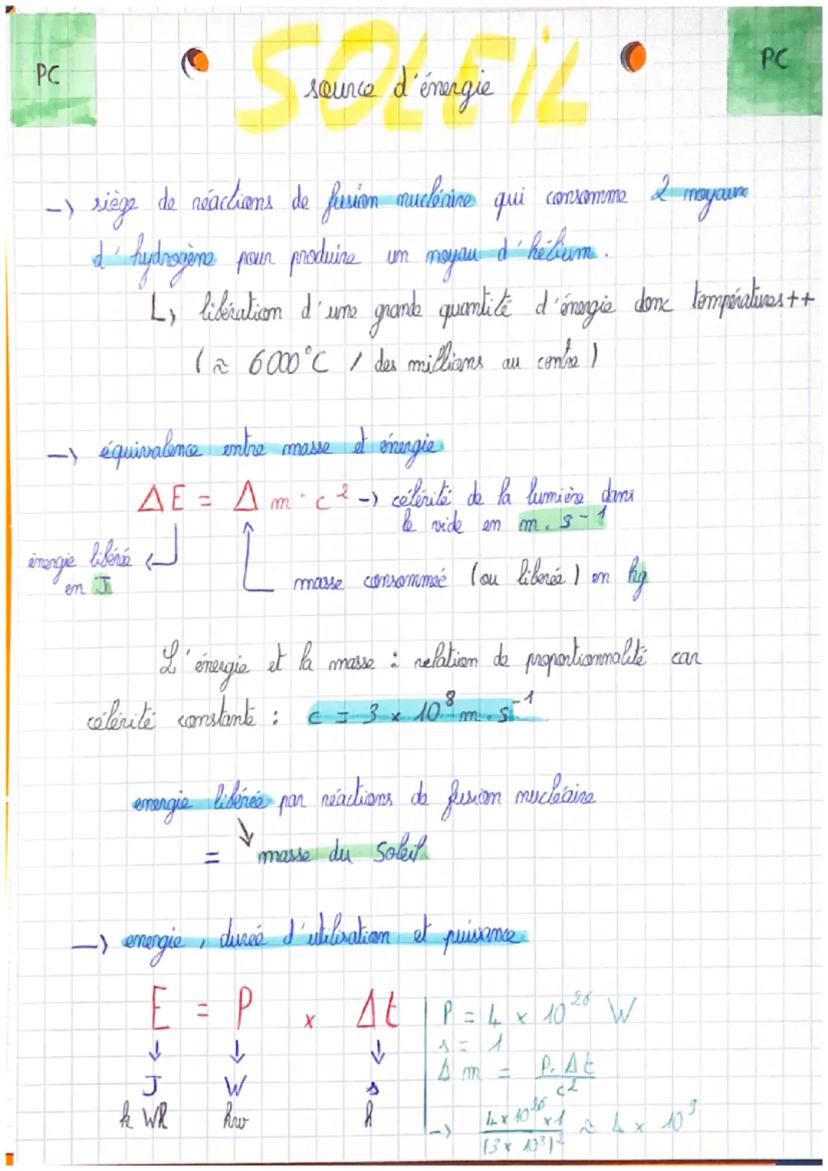 PC
SOLEIL
PC
source d'énergie
-> siège de réactions de fusion nucléaire qui consomme 2 noyaux
d'hydrogène pour produire un noyau d'hélium.
L> libération d'une grande quantité d'énergie donc températures ++
(≈ 6000°C / des millions au centre)
-> équivalence entre masse et énergie
ΔE = Δm · c² -> célérité de la lumière dans
le vide en m.s-1
énergie libérée
en J
masse consommée (ou liberée) en kg
L'énergie et la masse : relation de proportionnalité car
célérité constante : c = 3 x 10⁸ m.s⁻¹
energie libérée par réactions de fusion nucléaire
= ↘ masse du Soleil
-> energie, durée d'utilisation et puissance
E = P x Δt
↓ ↓ ↓
J W s
k Wh kw h
P = 4 x 10²⁶ W
s = 1
Δm = P.Δt / c²
-> 4x10²⁶x1 / (3x10⁸)² ≈ 4 x 10⁹